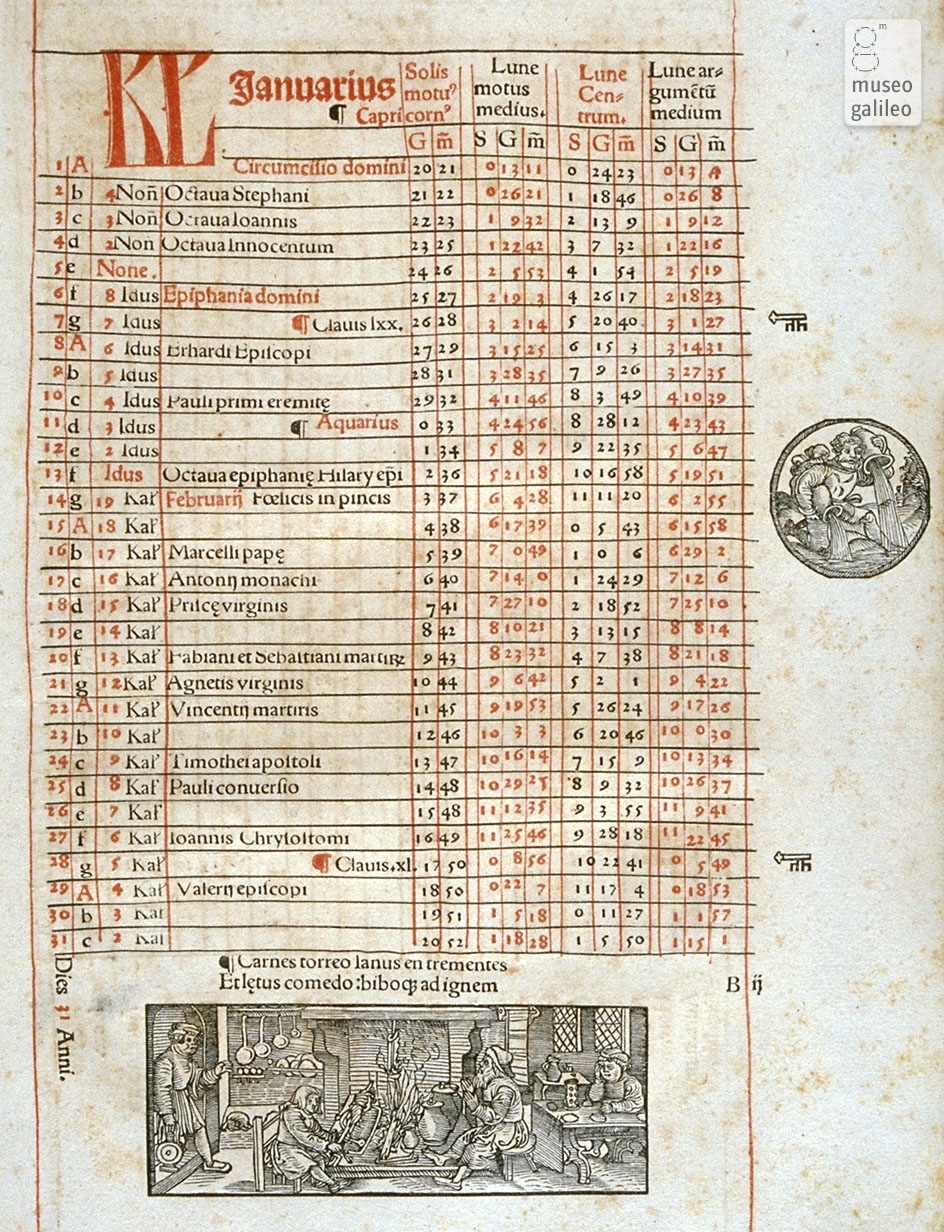 museo
galileo
KL Ianuarius Solis motuꝰ Lune motus medius. Lune Cen= trum. Lune ar= gumētū medium
¶ Capricornꝰ
G m̃ S G m̃ S G m̃ S G m̃
1 A Circumcisio domini 20 21 0 13 11 0 24 23 0 13 4
2 b 4 Noñ Octaua Stephani 21 22 0 26 21 1 18 46 0 26 8
3 c 3 Noñ Octaua Ioannis 22 23 1 9 32 2 13 9 1 9 12
4 d 2 Noñ Octaua Innocentum 23 25 1 22 42 3 7 32 1 22 16
5 e None. 24 26 2 5 53 4 1 54 2 5 19
6 f 8 Idus Epiphania domini 25 27 2 19 3 4 26 17 2 18 23
7 g 7 Idus ¶ Clauis lxx. 26 28 3 2 14 5 20 40 3 1 27
8 A 6 Idus Erhardi Episcopi 27 29 3 15 25 6 15 3 3 14 31
9 b 5 Idus 28 31 3 28 35 7 9 26 3 27 35
10 c 4 Idus Pauli primi eremitę 29 32 4 11 46 8 3 49 4 10 39
11 d 3 Idus ¶ Aquarius 0 33 4 24 56 8 28 12 4 23 43
12 e 2 Idus 1 34 5 8 7 9 22 35 5 6 47
13 f Idus Octaua epiphanię Hilary ep̃i 2 36 5 21 18 10 16 58 5 19 51
14 g 19 Kał Februarij Fœlicis in pincis 3 37 6 4 28 11 11 20 6 2 55
15 A 18 Kał 4 38 6 17 39 0 5 43 6 15 58
16 b 17 Kał Marcelli papę 5 39 7 0 49 1 0 6 6 29 2
17 c 16 Kał Antonij monachi 6 40 7 14 0 1 24 29 7 12 6
18 d 15 Kał Priscę virginis 7 41 7 27 10 2 18 52 7 25 10
19 e 14 Kał 8 42 8 10 21 3 13 15 8 8 14
20 f 13 Kał Fabiani et Sebastiani martirꝝ 9 43 8 23 32 4 7 38 8 21 18
21 g 12 Kał Agnetis virginis 10 44 9 6 42 5 2 1 9 4 22
22 A 11 Kał Vincentij martiris 11 45 9 19 53 5 26 24 9 17 26
23 b 10 Kał 12 46 10 3 3 6 20 46 10 0 30
24 c 9 Kał Timothei apostoli 13 47 10 16 14 7 15 9 10 13 34
25 d 8 Kał Pauli conuersio 14 48 10 29 25 8 9 32 10 26 37
26 e 7 Kał 15 48 11 12 35 9 3 55 11 9 41
27 f 6 Kał Ioannis Chrysostomi 16 49 11 25 46 9 28 18 11 22 45
28 g 5 Kał ¶ Clauis.xl. 17 50 0 8 56 10 22 41 0 5 49
29 A 4 Kał Valerij episcopi 18 50 0 22 7 11 17 4 0 18 53
30 b 3 Kal 19 51 1 5 18 0 11 27 1 1 57
31 c 2 Kal 20 52 1 18 28 1 5 50 1 15 1
¶ Carnes torreo Ianus en trementes
Et lętus comedo: biboqꝫ ad ignem
B ij
Dies 31 Anni.